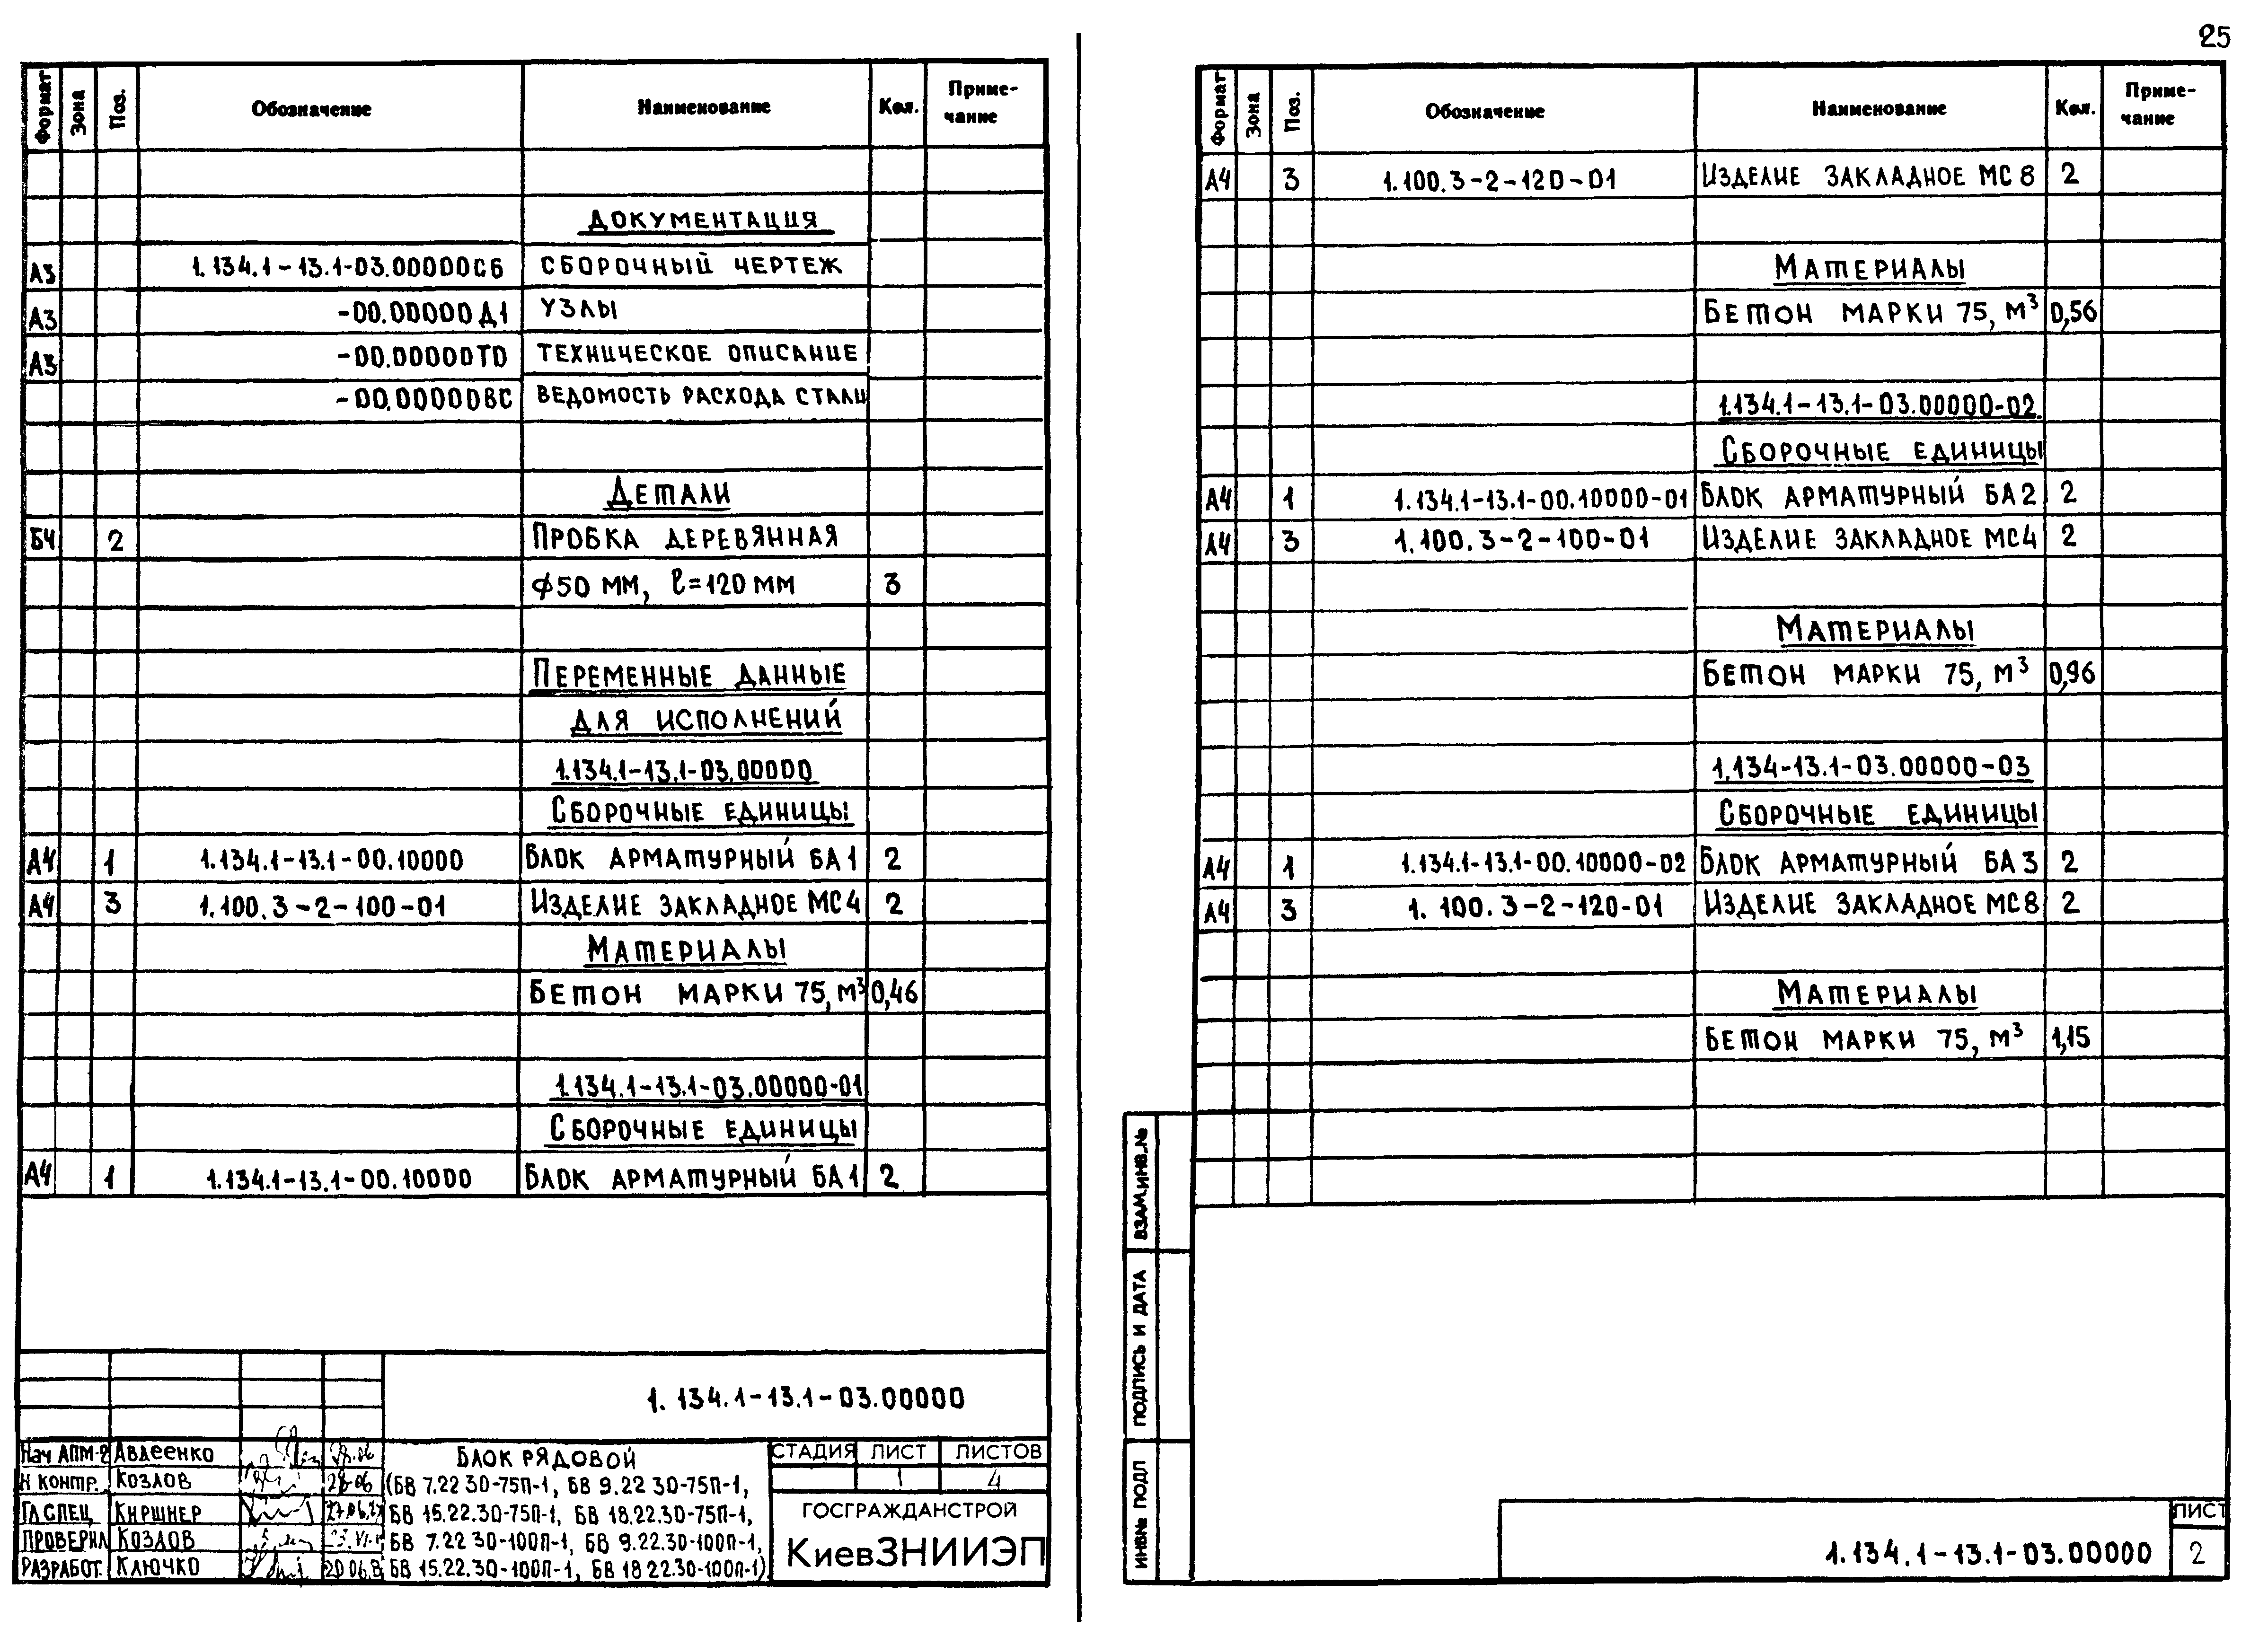 25
Формат Зона Поз. Обозначение Наименование Кол. Приме-
чание
ДОКУМЕНТАЦИЯ
А3 1.134.1-13.1-03.00000СБ СБОРОЧНЫЙ ЧЕРТЕЖ
А3 -00.00000Д1 УЗЛЫ
А3 -00.00000ТО ТЕХНИЧЕСКОЕ ОПИСАНИЕ
-00.00000ВС ВЕДОМОСТЬ РАСХОДА СТАЛИ
ДЕТАЛИ
БЧ 2 ПРОБКА ДЕРЕВЯННАЯ
ϕ50 ММ, ℓ=120 ММ 3
ПЕРЕМЕННЫЕ ДАННЫЕ
ДЛЯ ИСПОЛНЕНИЙ
1.134.1-13.1-03.00000
СБОРОЧНЫЕ ЕДИНИЦЫ
А4 1 1.134.1-13.1-00.10000 БЛОК АРМАТУРНЫЙ БА1 2
А4 3 1.100.3-2-100-01 ИЗДЕЛИЕ ЗАКЛАДНОЕ МС4 2
МАТЕРИАЛЫ
БЕТОН МАРКИ 75, М³ 0,46
1.134.1-13.1-03.00000-01
СБОРОЧНЫЕ ЕДИНИЦЫ
А4 1 1.134.1-13.1-00.10000 БЛОК АРМАТУРНЫЙ БА1 2
1.134.1-13.1-03.00000
НАЧ АПМ-2 АВДЕЕНКО 28.06
Н КОНТР. КОЗЛОВ 28.06
ГЛ СПЕЦ КИРШНЕР
ПРОВЕРИЛ КОЗЛОВ
РАЗРАБОТ. КЛЮЧКО
БЛОК РЯДОВОЙ
(БВ 7.22 30-75П-1, БВ 9.22 30-75П-1,
БВ 15.22.30-75П-1, БВ 18.22.30-75П-1,
БВ 7.22 30-100П-1, БВ 9.22.30-100П-1,
БВ 15.22.30-100П-1, БВ 18 22.30-100П-1)
СТАДИЯ ЛИСТ ЛИСТОВ
1 4
ГОСГРАЖДАНСТРОЙ
КиевЗНИИЭП
Формат Зона Поз. Обозначение Наименование Кол. Приме-
чание
А4 3 1.100.3-2-120-01 ИЗДЕЛИЕ ЗАКЛАДНОЕ МС8 2
МАТЕРИАЛЫ
БЕТОН МАРКИ 75, М³ 0,56
1.134.1-13.1-03.00000-02
СБОРОЧНЫЕ ЕДИНИЦЫ
А4 1 1.134.1-13.1-00.10000-01 БЛОК АРМАТУРНЫЙ БА2 2
А4 3 1.100.3-2-100-01 ИЗДЕЛИЕ ЗАКЛАДНОЕ МС4 2
МАТЕРИАЛЫ
БЕТОН МАРКИ 75, М³ 0,96
1.134-13.1-03.00000-03
СБОРОЧНЫЕ ЕДИНИЦЫ
А4 1 1.134.1-13.1-00.10000-02 БЛОК АРМАТУРНЫЙ БА3 2
А4 3 1.100.3-2-120-01 ИЗДЕЛИЕ ЗАКЛАДНОЕ МС8 2
МАТЕРИАЛЫ
БЕТОН МАРКИ 75, М³ 1,15
ВЗАМ.ИНВ.№
ПОДПИСЬ И ДАТА
ИНВ№ ПОДЛ
1.134.1-13.1-03.00000
ЛИСТ
2